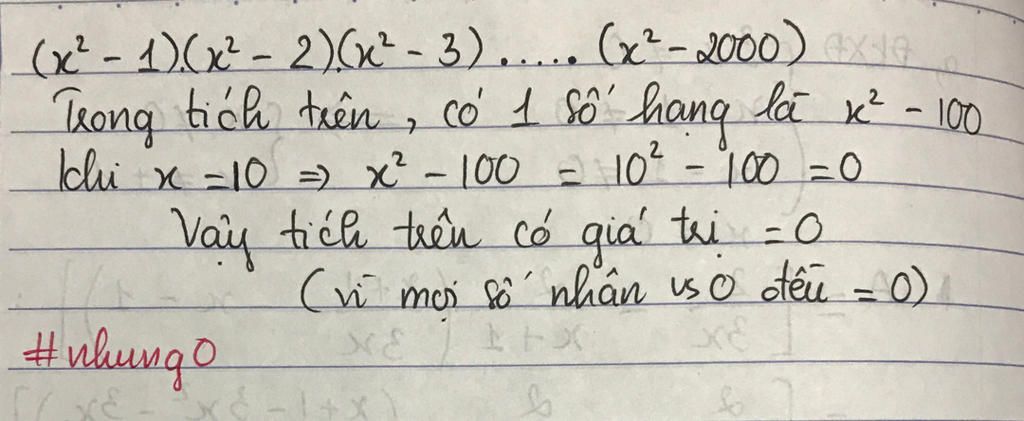 (x² - 1).(x² - 2).(x² - 3)..... (x² - 2000)
Trong tích trên, có 1 số hạng là x² - 100
khi x = 10 => x² - 100 = 10² - 100 = 0
Vậy tích trên có giá trị = 0
(vì mọi số nhân vs 0 đều = 0)
#nhung0